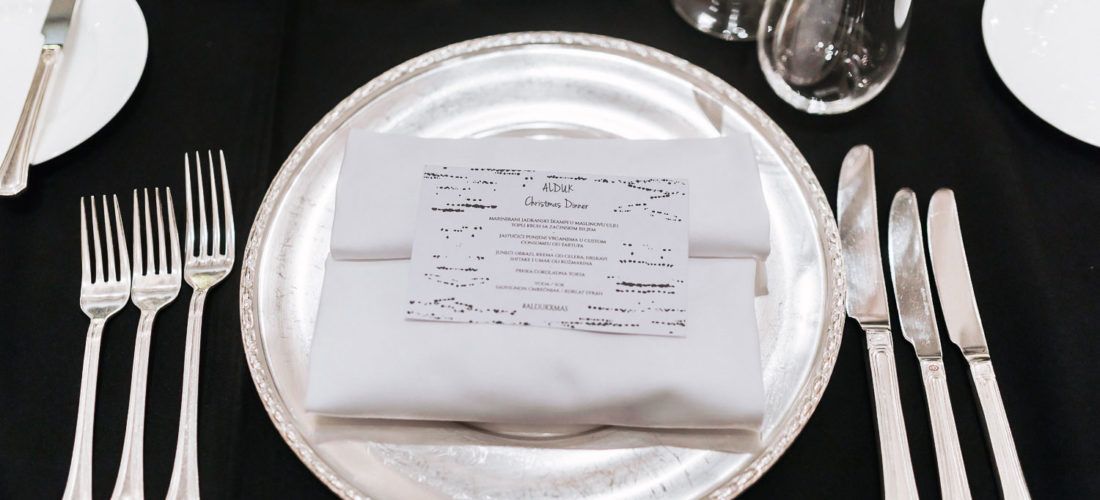 ALDUK
Christmas Dinner
MARINIRANI JADRANSKI ŠKAMPI U MASLINOVU ULJU,
TOPLI KRUH SA ZAČINSKIM BILJEM
JASTUČIĆI PUNJENI VRGANJIMA U GUSTOM
CONSUMEU OD TARTUFA
JUNEĆI OBRAZI, KREMA OD CELERA, HRSKAVI
SHIITAKE I UMAK OD RUŽMARINA
ČOKOLADNA TORTA
VODA / SOK
SAUVIGNON / KORLAT SYRAH
#ALDUKXMAS